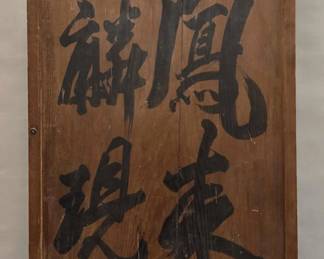 鳳来
麟現